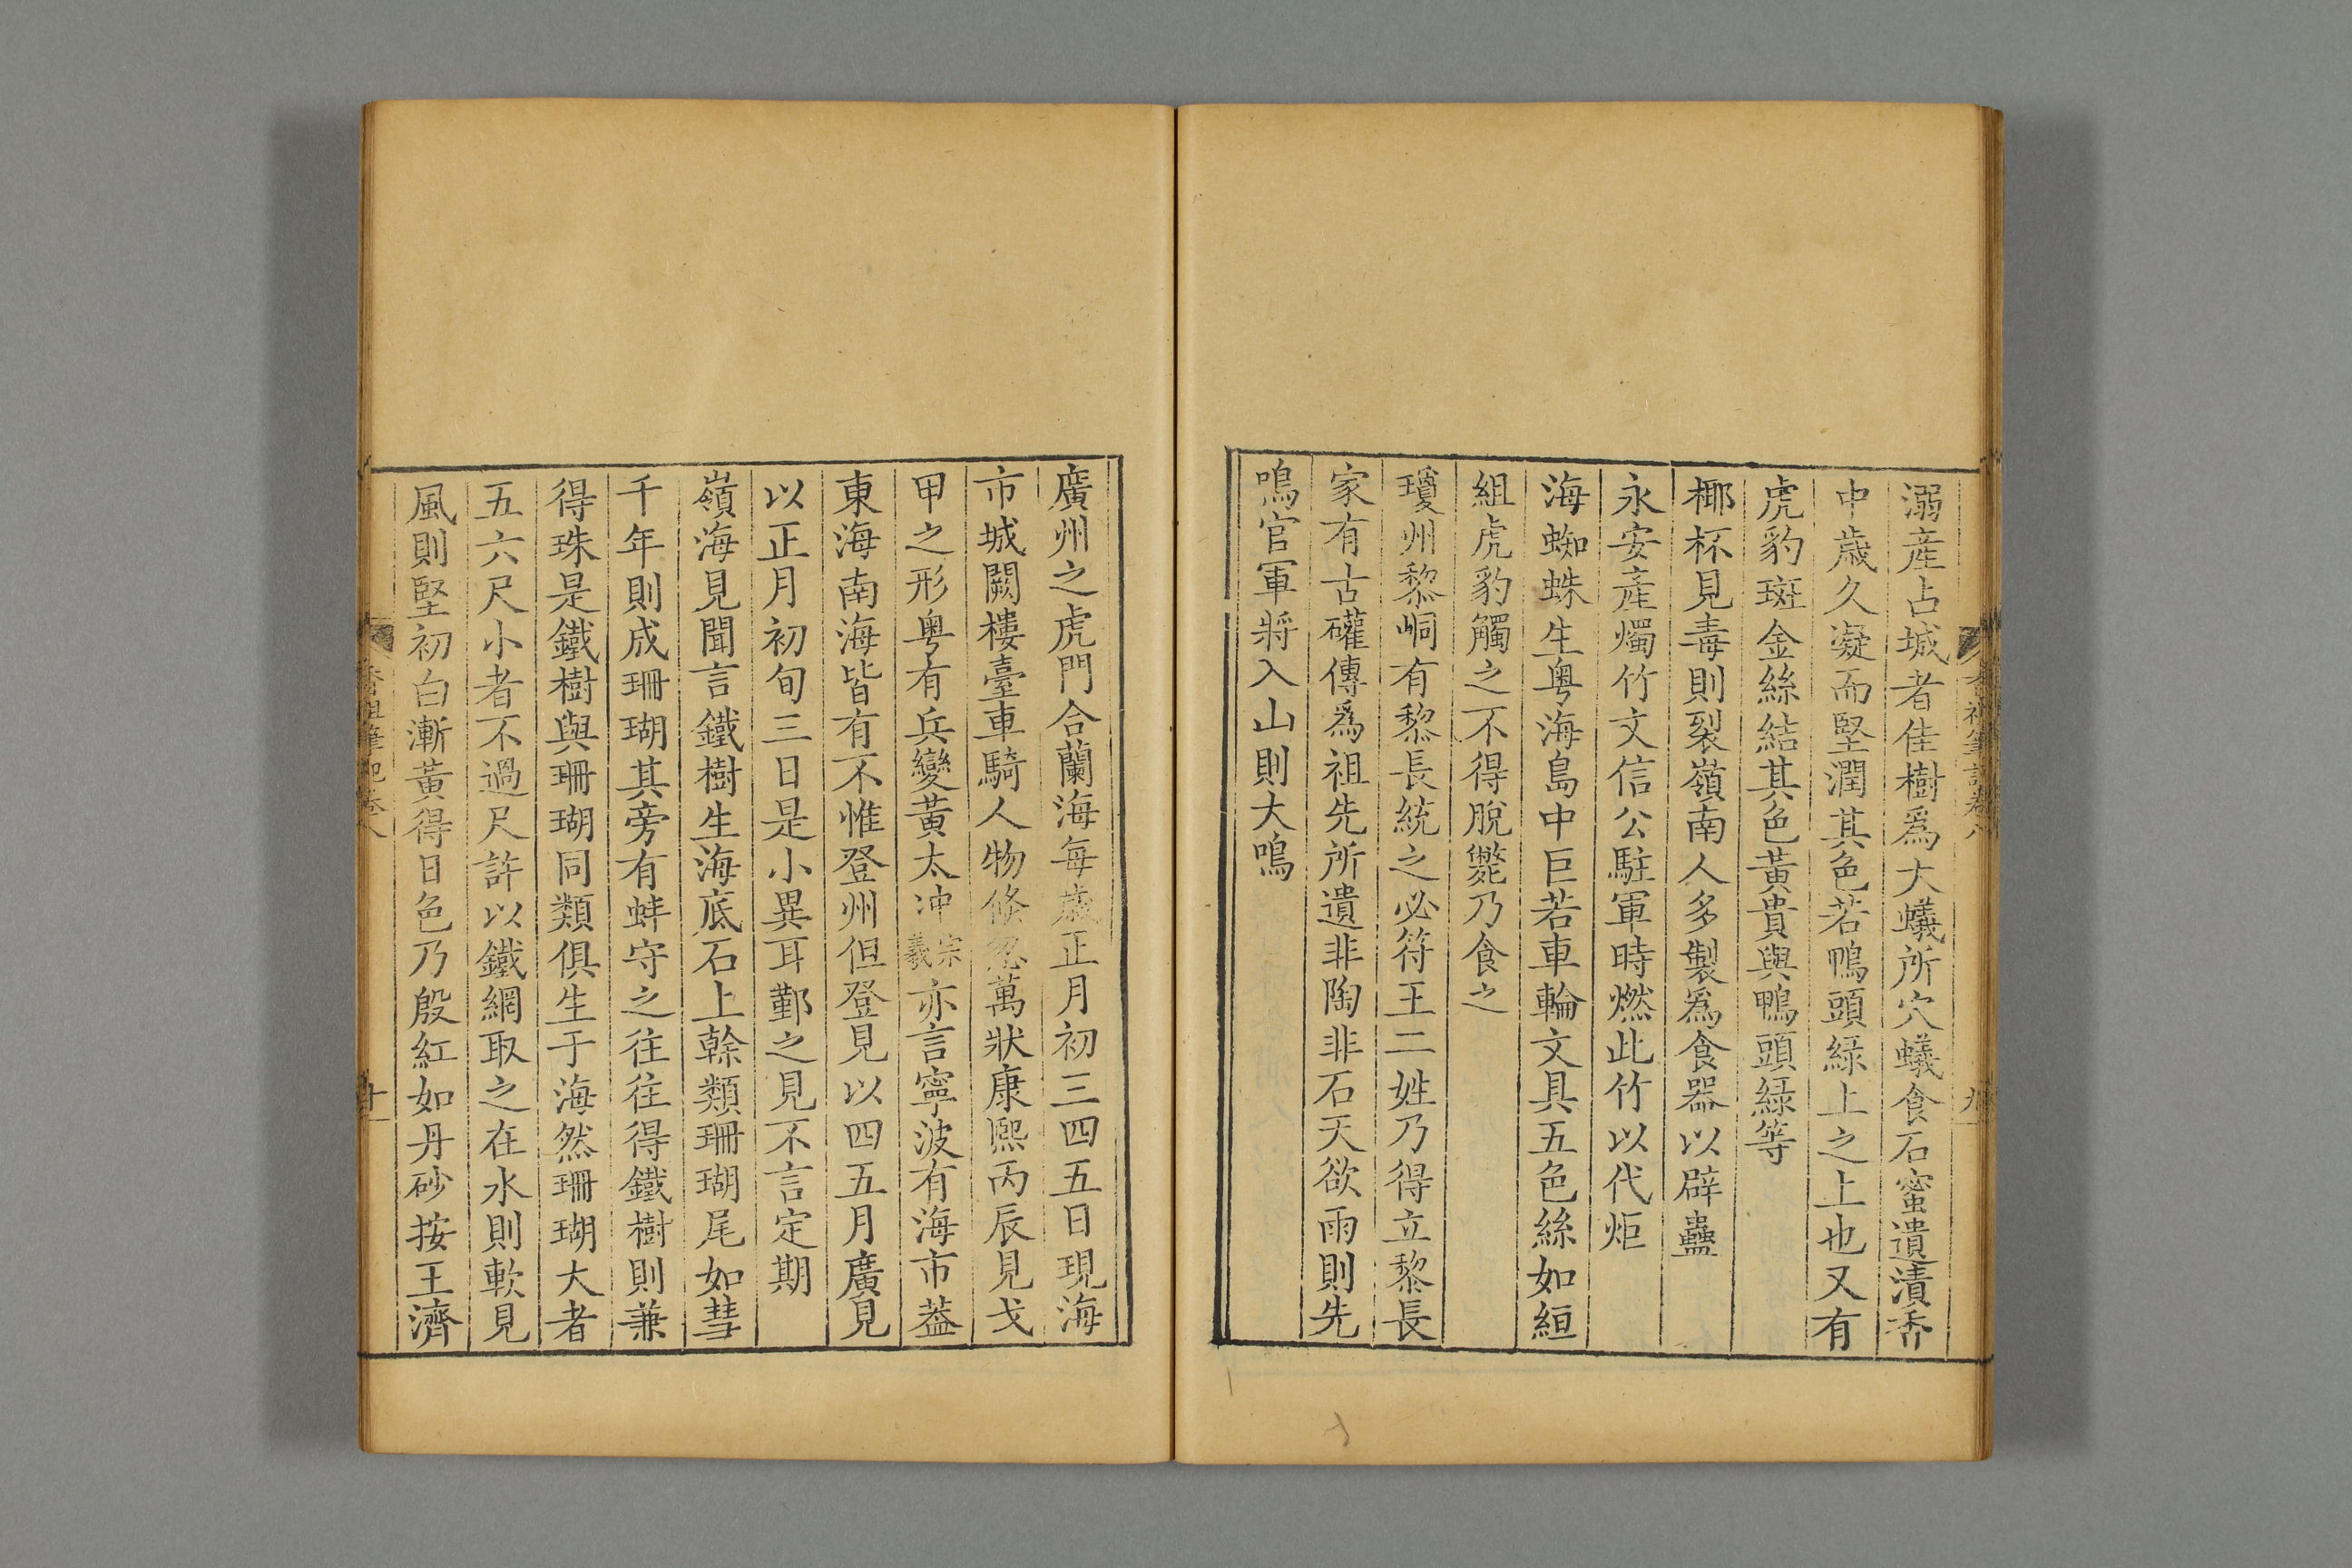 溺産占城者佳樹爲大蟻所穴蟻食石蜜遺漬香
中歲久凝而堅潤其色若鴨頭緑上之上也又有
虎豹斑金絲結其色黃貴與鴨頭緑等
椰杯見毒則裂嶺南人多製爲食器以辟蠱
永安產燭竹文信公駐軍時燃此竹以代炬
海蜘蛛生粤海島中巨若車輪文具五色絲如絙
組虎豹觸之不得脫斃乃食之
瓊州黎峒有黎長統之必符王二姓乃得立黎長
家有古礶傳爲祖先所遺非陶非石天欲雨則先
鳴官軍將入山則大鳴
廣州之虎門合蘭海每歲正月初三四五日現海
市城闕樓臺車騎人物倏忽萬狀康熙丙辰見戈
甲之形粤有兵變黃太冲宗羲亦言寧波有海市葢
東海南海皆有不惟登州但登見以四五月廣見
以正月初旬三日是小異耳鄞之見不言定期
嶺海見聞言鐵樹生海底石上榦類珊瑚尾如彗
千年則成珊瑚其旁有蚌守之往往得鐵樹則兼
得珠是鐵樹與珊瑚同類俱生于海然珊瑚大者
五六尺小者不過尺許以鐵網取之在水則軟見
風則堅初白漸黃得日色乃殷紅如丹砂按王濟
香祖筆記卷八
十